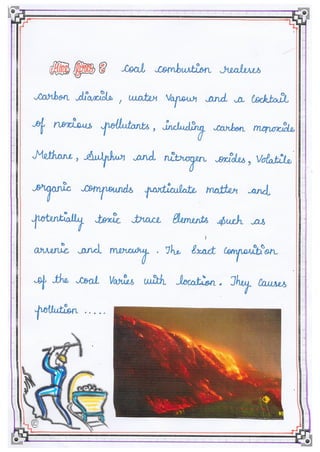 How Fires ? Coal combustion realeses
carbon dioxide , water Vapour and a Cocktail
of noxious pollutants, including carbon monoxide
Methane, Sulphur and nitrogen oxides, Volatile
organic compounds particulate matter and
potentially toxic trace Elements such as
arsenic and mercury . The Exact Composition
of the coal Varies with location. They Causes
pollution .....
©